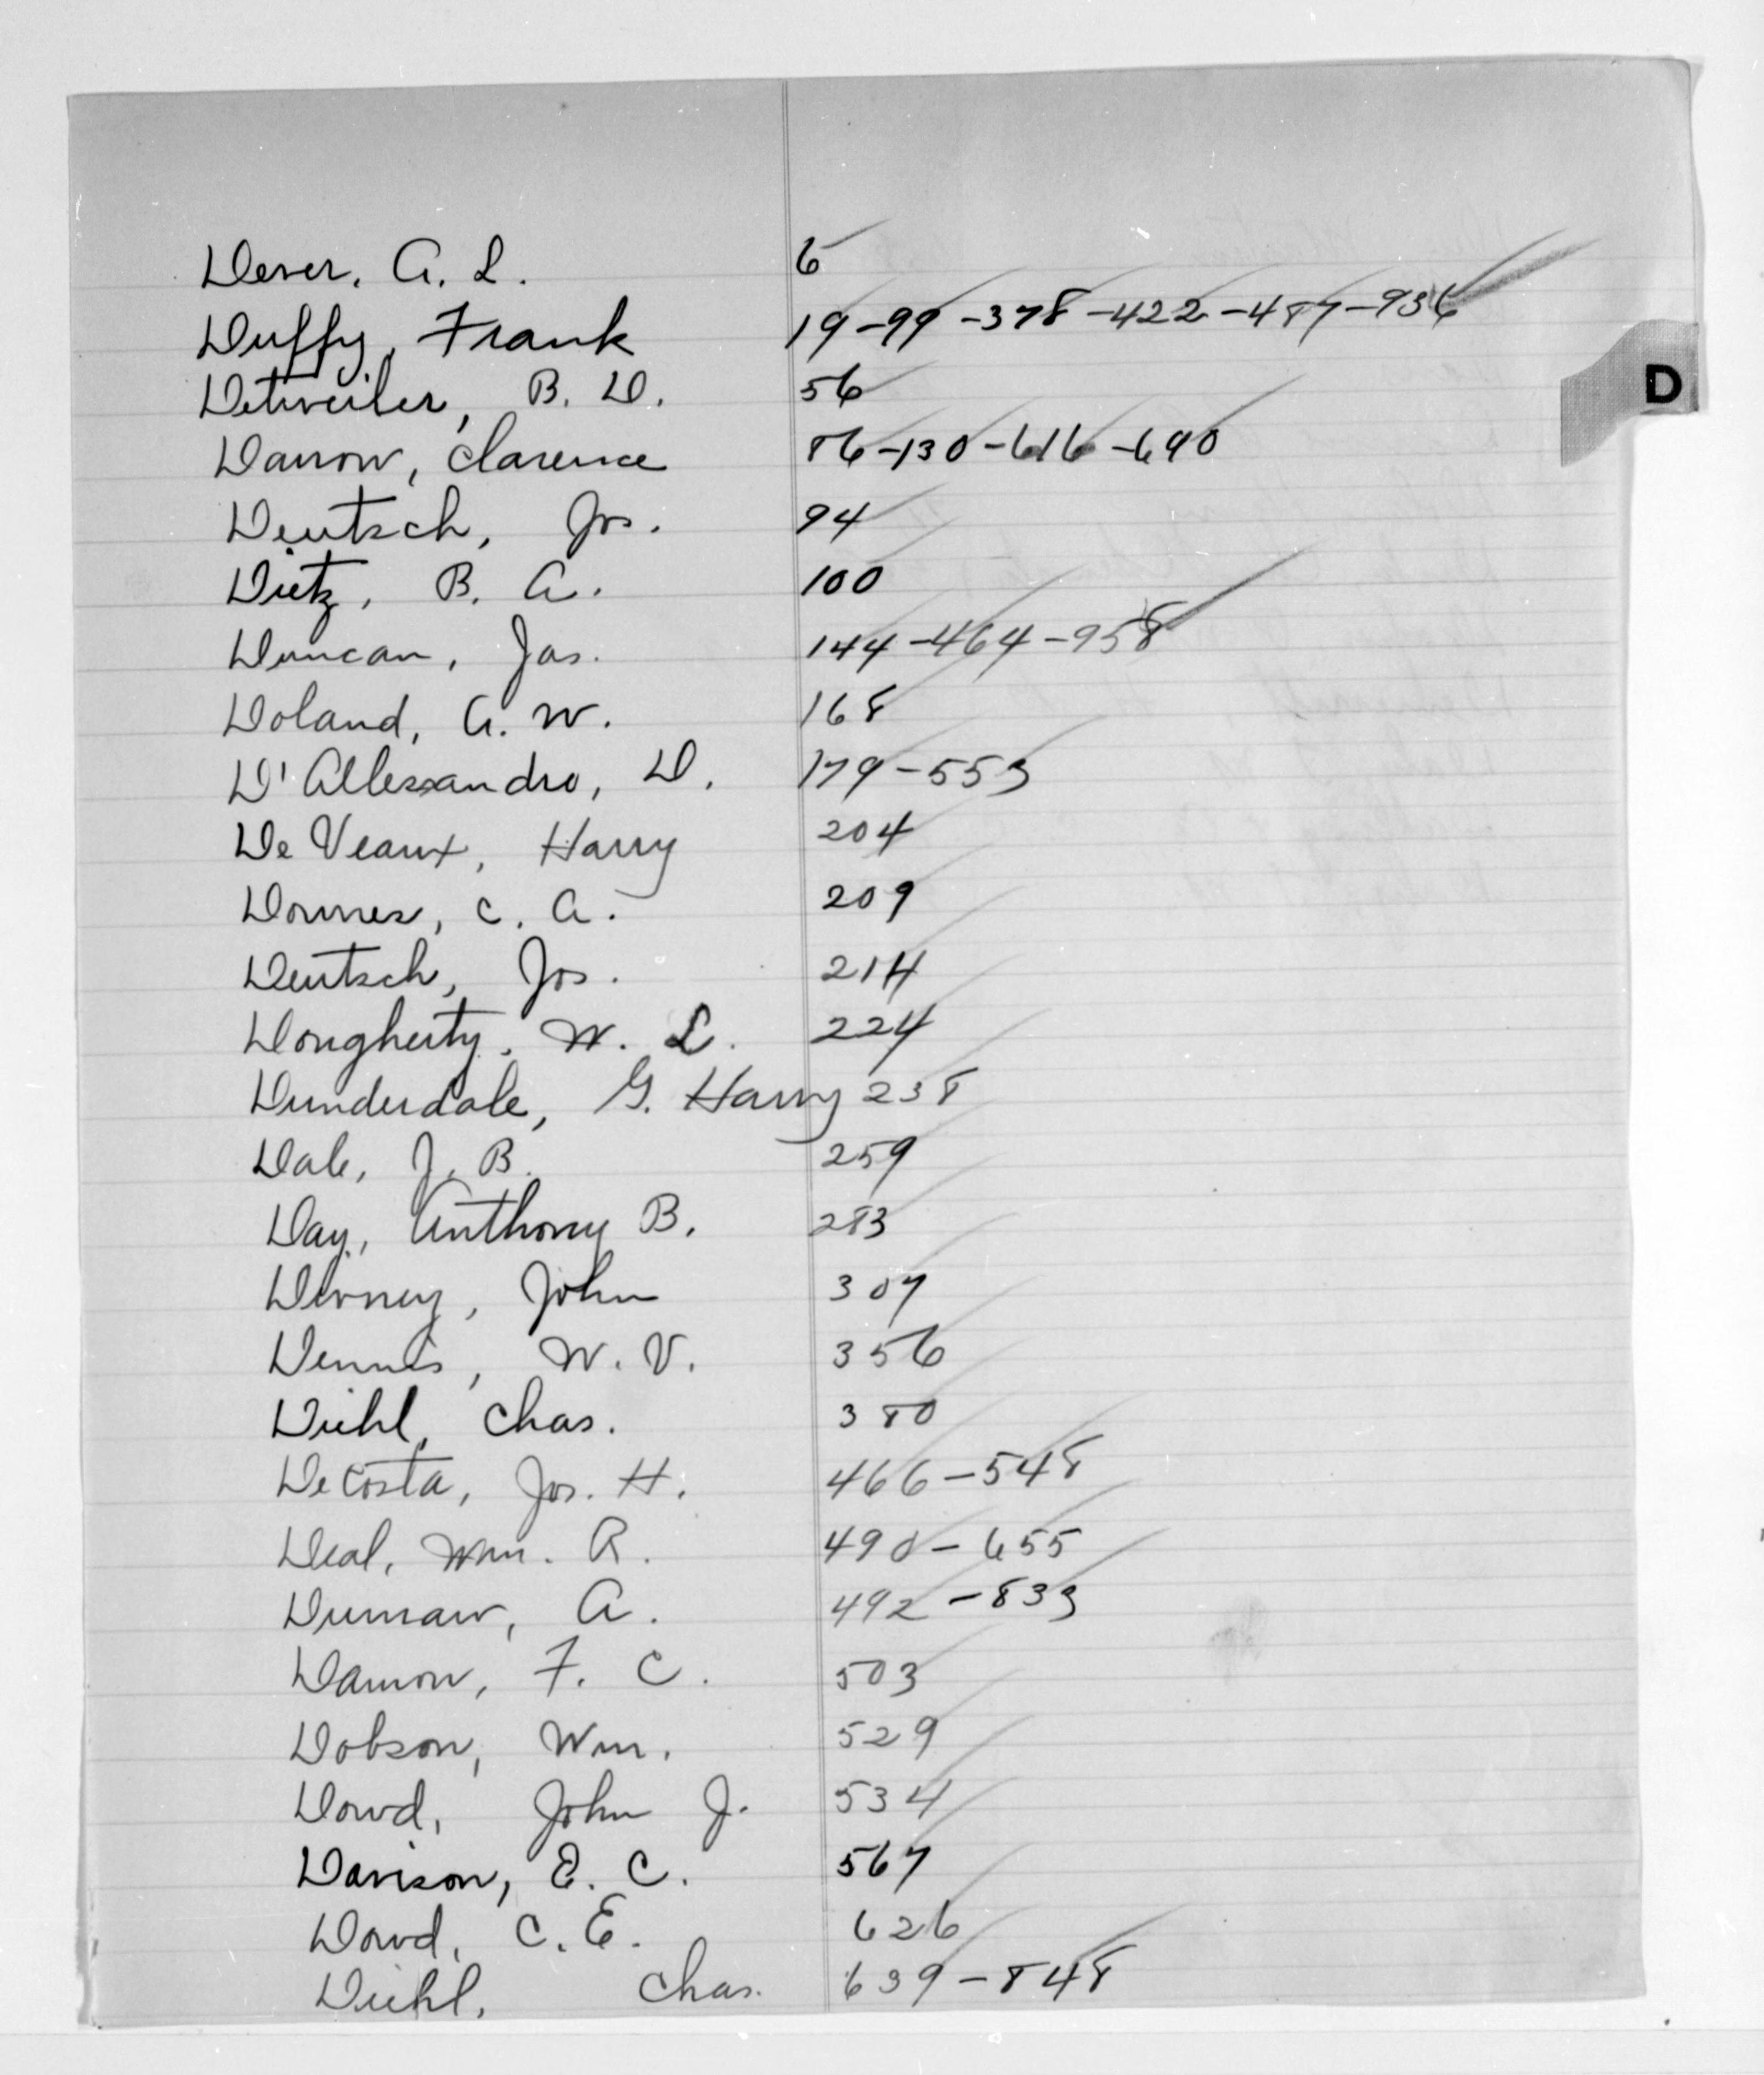 Dever, A. L. 6
Duffy, Frank 19-99-378-422-487-936
D
Detweiler, B. D. 56
Darrow, Clarence 86-130-616-690
Deutsch, Jos. 94
Dietz, B. A. 100
Duncan, Jas. 144-464-958
Doland, A. W. 168
D'Allessandro, D. 179-553
De Veaux, Harry 204
Downes, C. A. 209
Deutsch, Jos. 214
Dougherty, W. L. 224
Dunderdale, G. Harry 238
Dale, J. B. 259
Day, Anthony B. 283
John 307
Dennis, W. V. 356
Diehl, Chas. 380
DeCosta, Jos. H. 466-548
Deal, Wm. R. 490-655
A. 492-833
Damon, F. C. 503
Dobson, Wm. 529
Dowd, John J. 534
Davison, E. C. 567
Dowd, C. E. 626
Diehl, Chas. 639-848